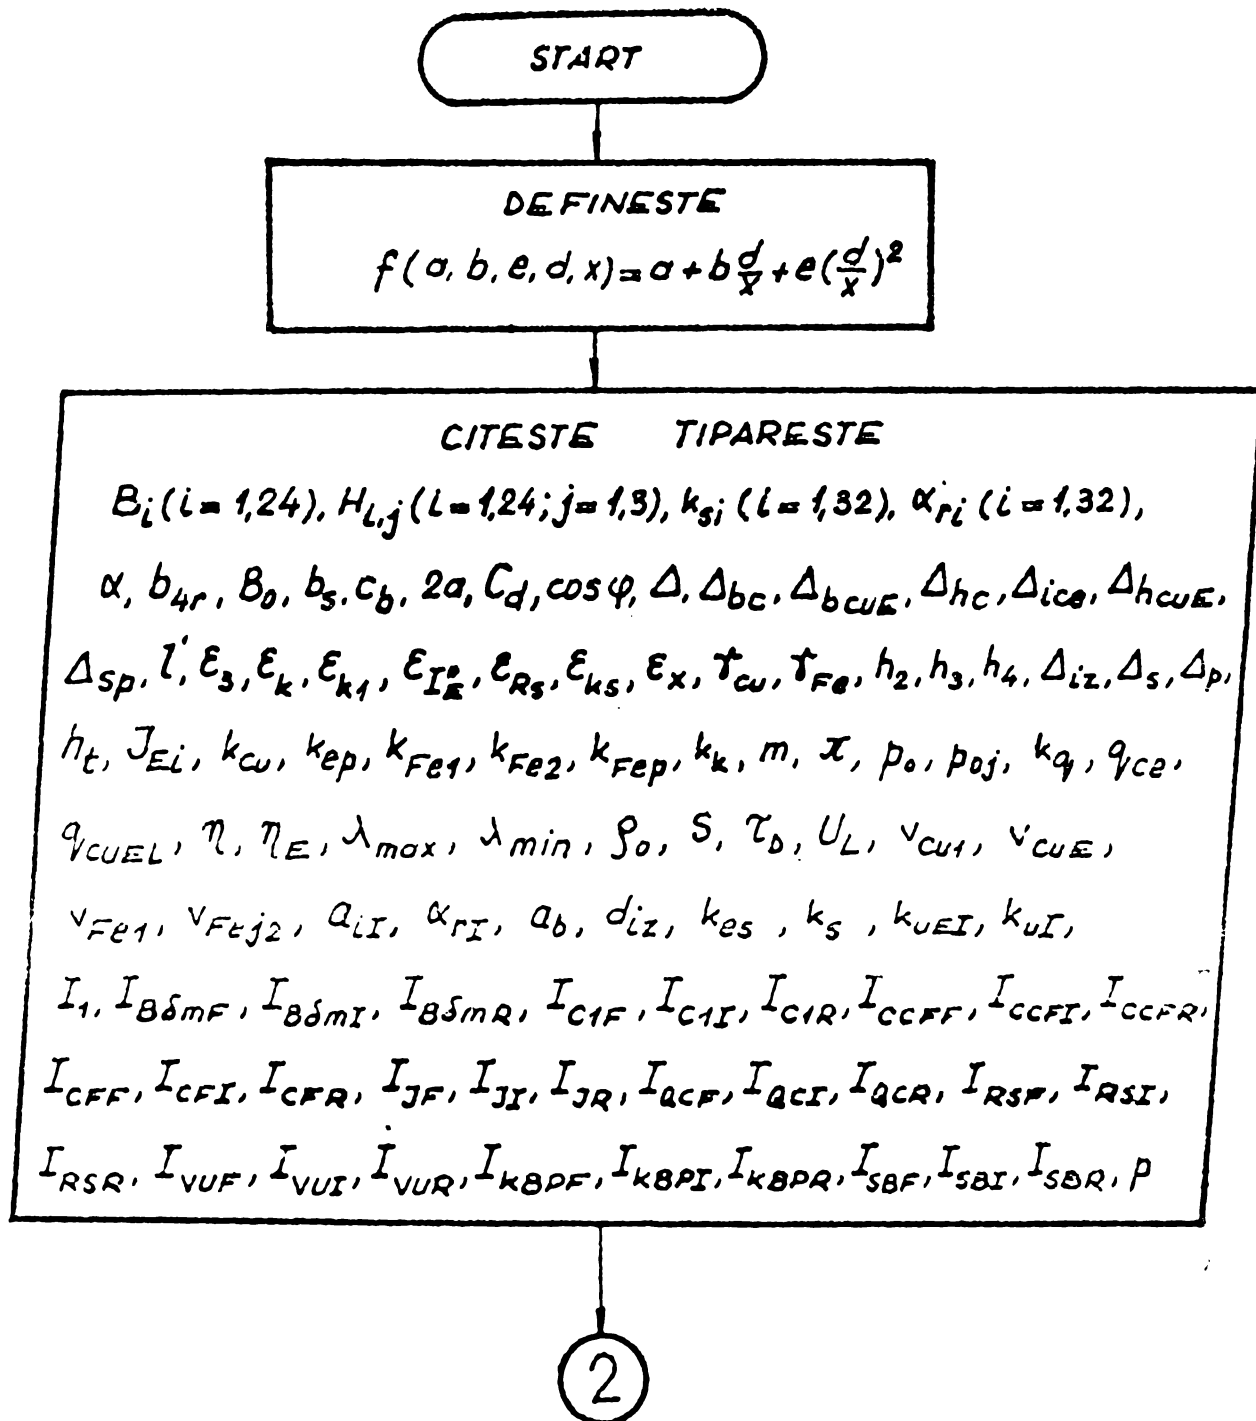 START
DEFINESTE
f(a, b, e, d, x) = a + b d/x + e(d/x)²
CITESTE TIPARESTE
B_i (i = 1,24), H_i,j (i = 1,24; j = 1,3), k_si (i = 1,32), α_ri (i = 1,32),
α, b_4r, B_0, b_s, c_b, 2a, C_d, cos φ, Δ, Δ_bc, Δ_bcuE, Δ_hc, Δ_ice, Δ_hcuE,
Δ_sp, l', ε_3, ε_k, ε_k1, ε_IE, ε_Rs, ε_ks, ε_x, γ_cu, γ_Fe, h_2, h_3, h_4, Δ_iz, Δ_s, Δ_p,
h_t, J_Ei, k_cu, k_ep, k_Fe1, k_Fe2, k_Fep, k_k, m, π, p_0, p_0j, k_q, q_ce,
q_CUEL, η, η_E, λ_max, λ_min, ρ_0, S, τ_D, U_L, v_cu1, v_cuE,
v_Fe1, v_Ftj2, a_iI, α_rI, a_b, d_iz, k_es, k_s, k_uEI, k_uI,
I_1, I_BδmF, I_BδmI, I_BδmR, I_C1F, I_C1I, I_C1R, I_CCFF, I_CCFI, I_CCFR,
I_CFF, I_CFI, I_CFR, I_JF, I_JI, I_JR, I_QCF, I_QCI, I_QCR, I_RSF, I_RSI,
I_RSR, I_VUF, I_VUI, I_VUR, I_KBPF, I_KBPI, I_KBPR, I_SBF, I_SBI, I_SBR, p
2